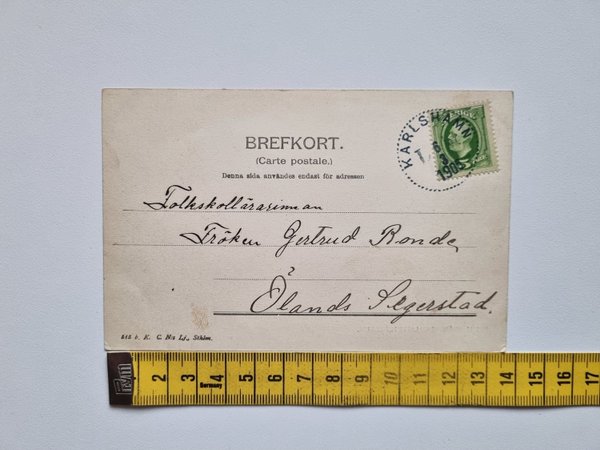 BREFKORT.
(Carte postale.)
Denna sida användes endast för adressen
KARLSHAMN
1905
Folkskollärarinnan
Fröken Gertrud Bonde,
Ölands Segerstad.
2 3 4 5 6 7 8 9 10 11 12 13 14 15 16 17
Germany